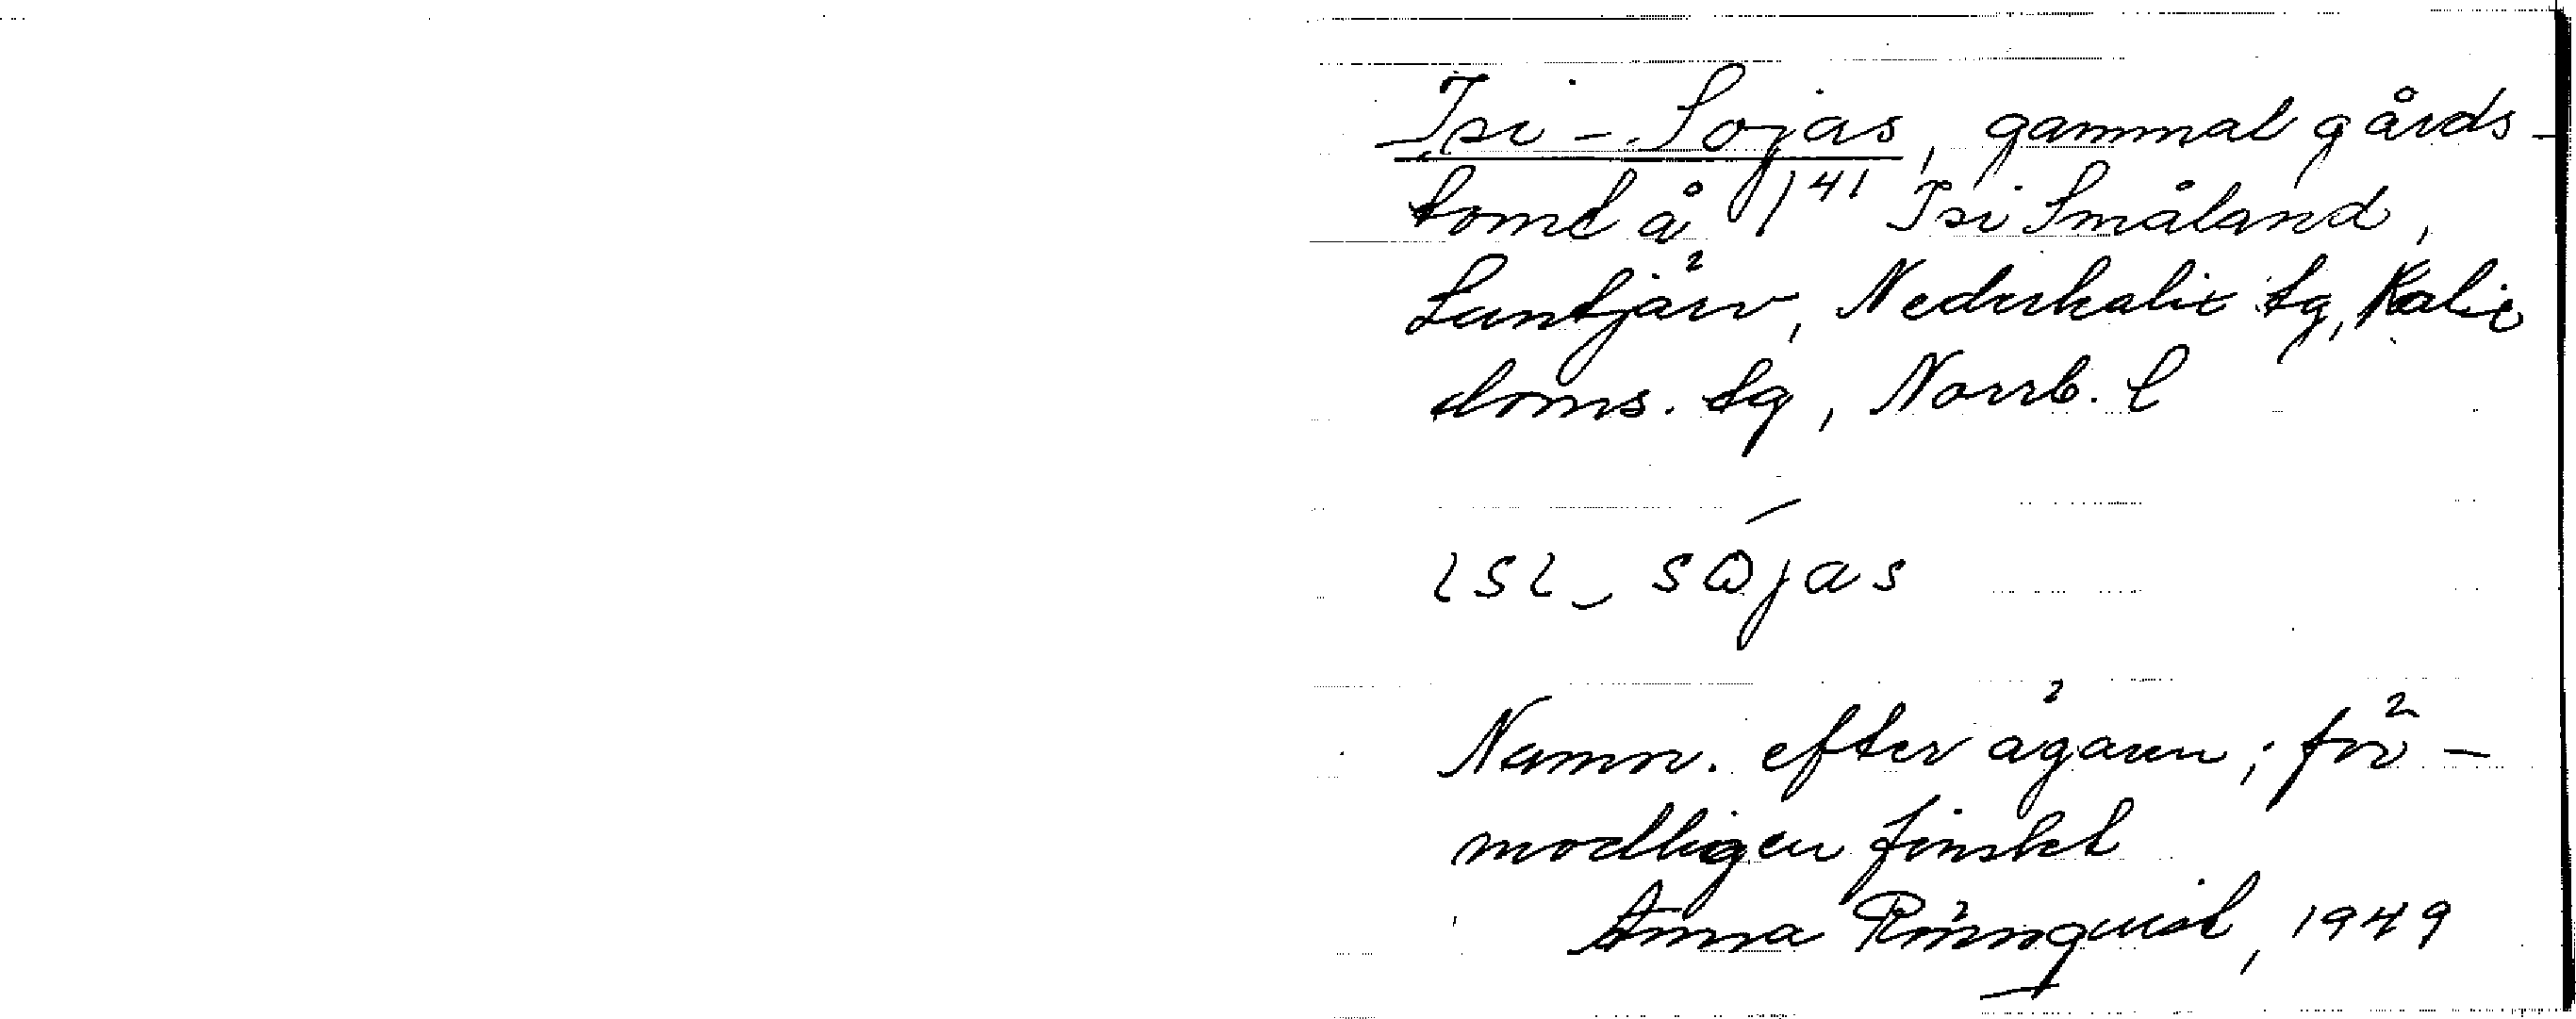 Isi-Sojas, gammal gårds-
tomt å 1/41 Isi Småland,
Lantjärv, Nederkalix tg, Kalix
doms. tg, Norrb. l
ısı‿sɷ́jas
Namn. efter ägaren; för-
modligen finskt
Anna Rönnquist, 1949